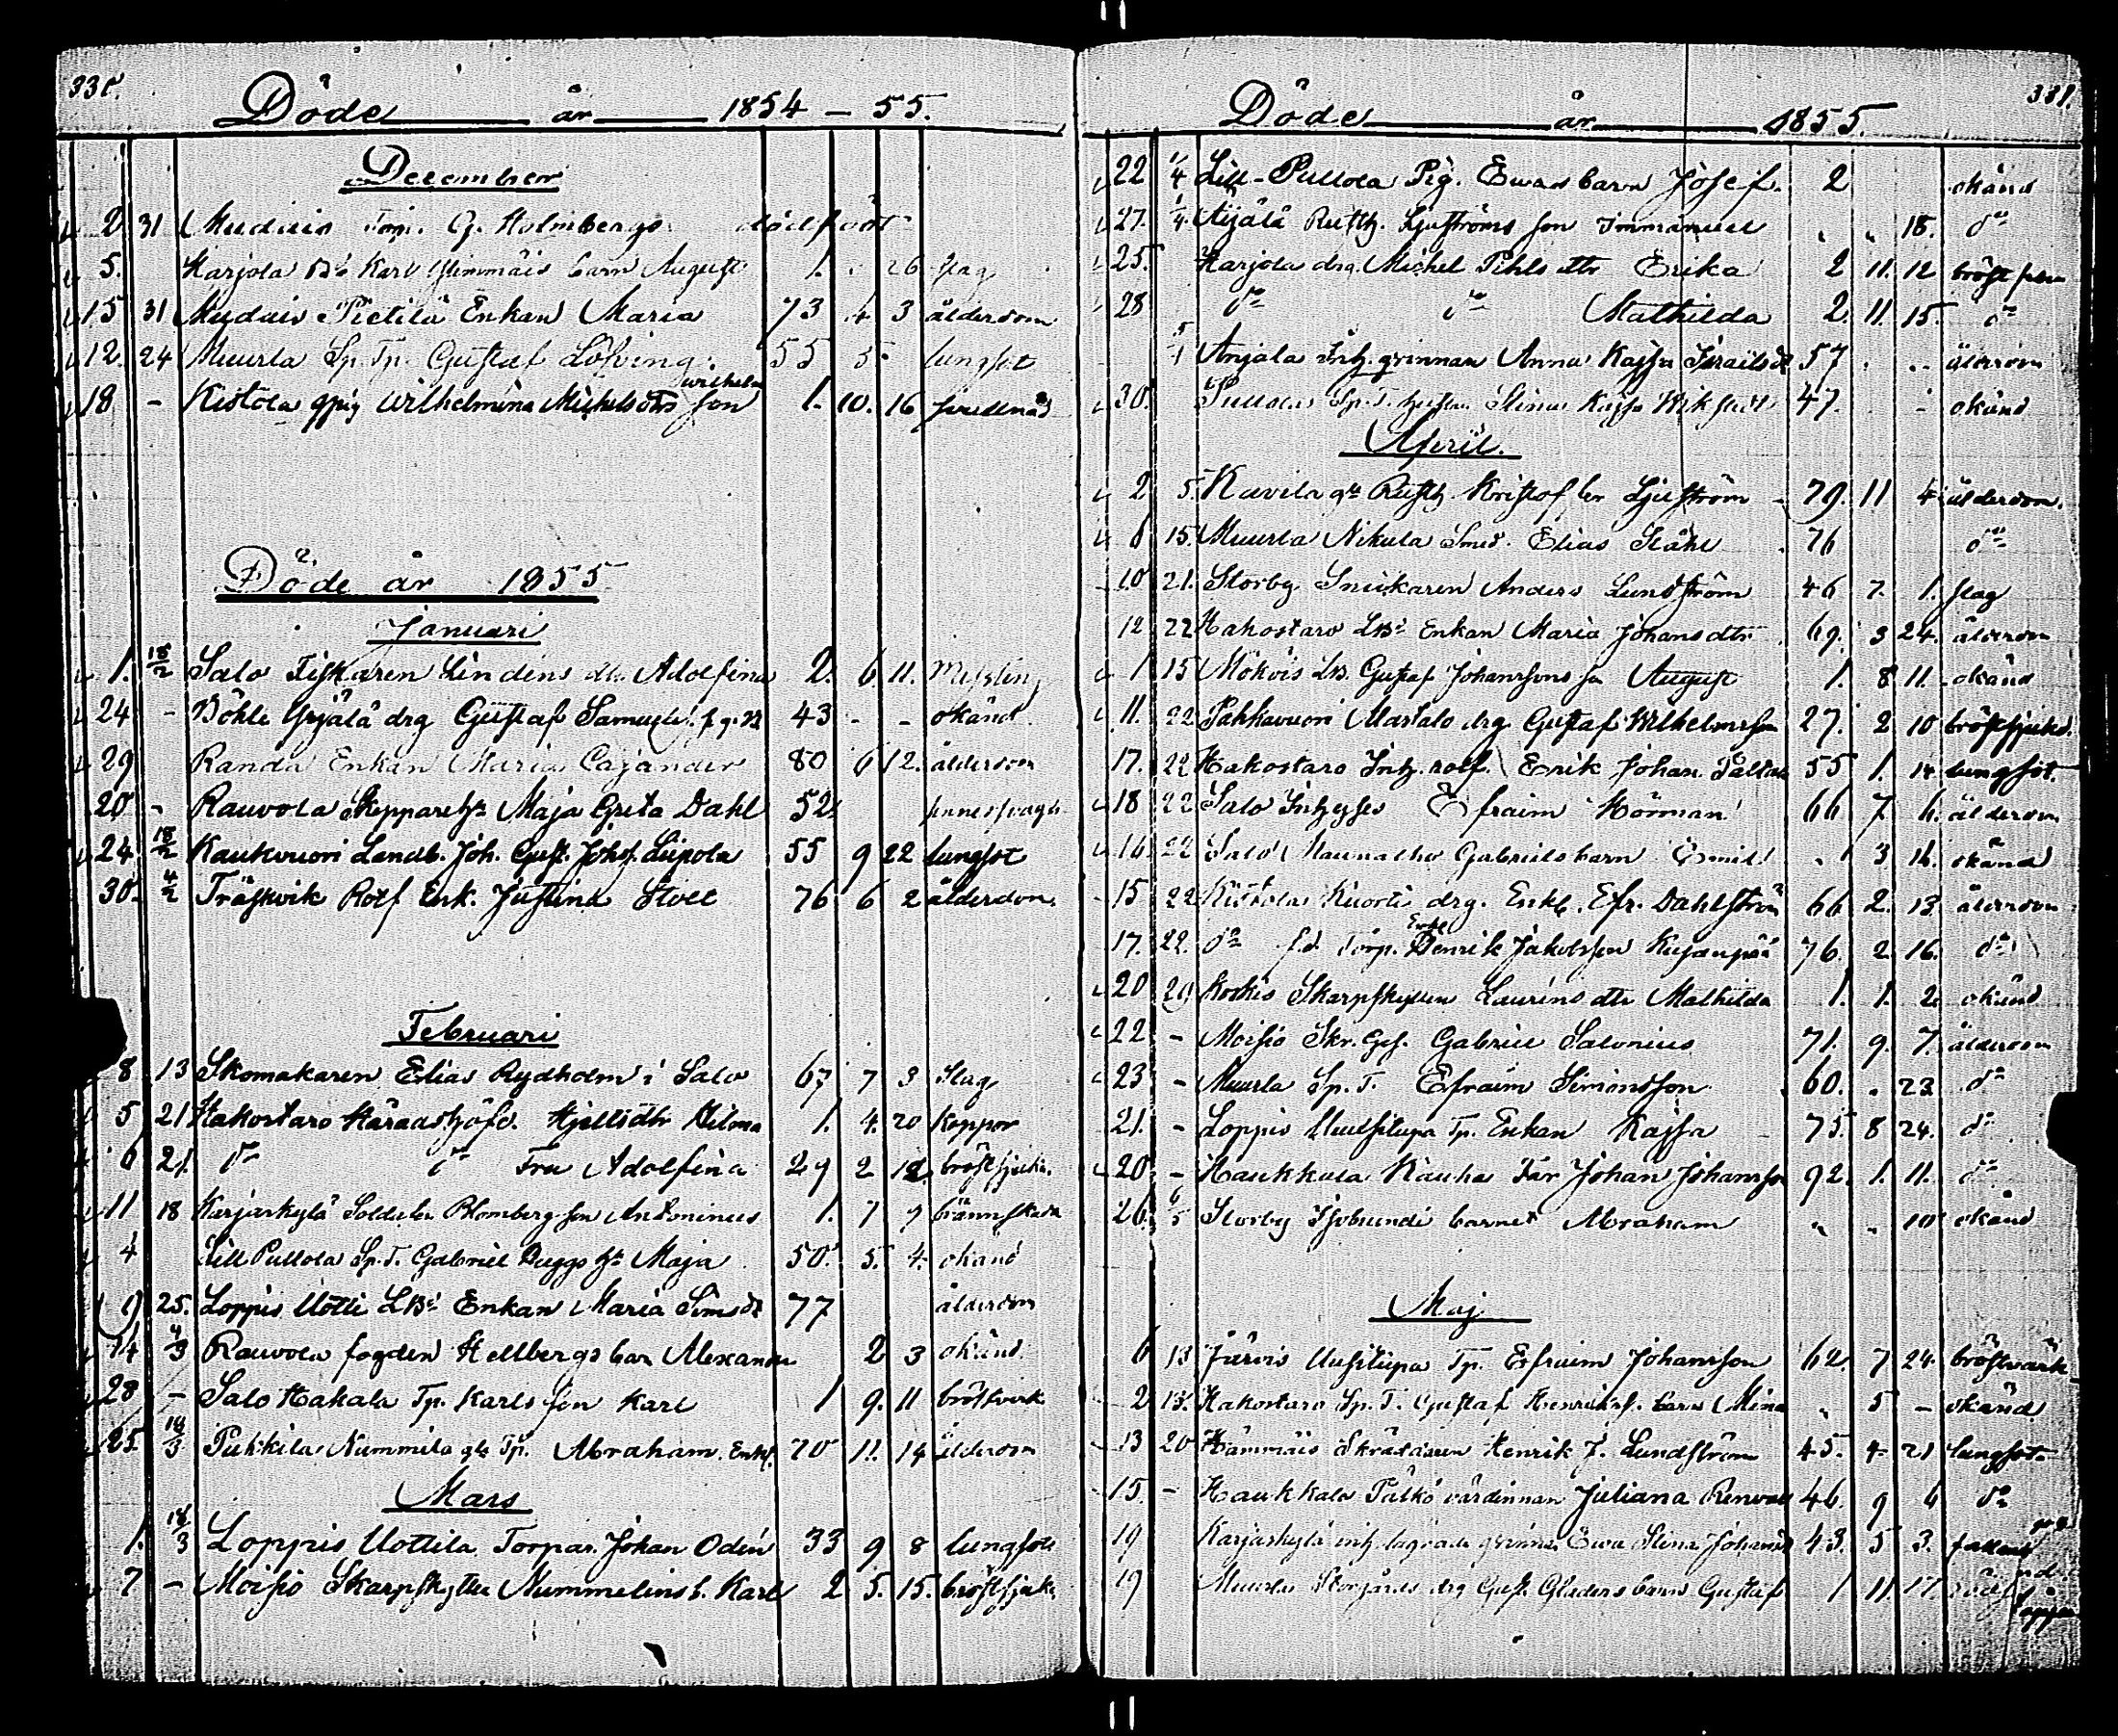 330.
Döde år 1854 - 55.
December
2 31 Muduis Torp. G. Holmbergs dödfödt
5. Karjola Karl Glimmäis barn August 1. 26 slag
15 31 Muduis Pietilä Enkan Maria 73 4 3 ålderdom
12. 24 Muurla Sp. Tp. Gustaf Löfving 55 5 lungsot
wilhelm
18 - Kistola gpig Wilhelmina Michelsdtrs son 1. 10. 16
Döde år 1855
Januari
1. 18/2 Salo Fiskaren Lindens dtr. Adolfina 2. 6. 11. Messling
24 - Böhle Yrjälä drg Gustaf Samuels. 43 - - okänd
29 Randa Enkan Maria Cajander 80 6 12. ålderdom
20 - Rauvola Maja Greta Dahl 52.
24 18/2 Kaukvuori Landb. Joh. Gust. Johs. Liipola 55 9 22 lungsot
30. 4/2 Träskvik Rotf Enk. Justina Stoll 76 6 2 ålderdom
Februari
8 13 Skomakaren Elias Rydholm i Salo 67 7 3 Slag
5 21 Hakostaro Häradshöfd. Hjelts dtr Hilma 1. 4. 20 Koppor
6 21. do do Fru Adolfina 29 2 12. bröstsjuka
11 18 Karjaskylä Soldaten Blomberg son Antoninus 1. 7 9 brännskada
4 Lill Pullola Sp. T. Gabriel Duggs h. Maja 50. 5. 4. okänd
9 25. Loppis Uotti LBs Enkan Maria Simsdr 77 ålderdom
14 4/3 Rauvola fogden Hellbergs barn Alexander 2 3 okänd
28 - Salo Hakala Tp. Karls son Karl 1 9. 11 bröstverk
25. 18/3 Pukkila Nummila gle Tp. Abraham. Enkl. 70 11. 14 ålderdom
Mars
1. 18/3 Loppis Uottila Torpar. Johan Odén 33 9 8 lungsot
7 - Moisio Skarpskytten Nummelins b. Karl 2 5. 15. bröstsjuk.
331.
Döde år 1855.
22 1/4 Lill-Pullola Pig. Ewas barn Josef. 2 okänd
27. 1/4 Äijälä Rusth. Ljuströms son Immanuel " " 18. do
25. Karjola drg. Michel Pihls dtr Erika 2 11. 12
28 do do Mathilda 2. 11. 15. do
Anjala Inh. qvinnan Anna Kajsa Israelsdr 57 ålderdom
30. Pullola Sp. T. hustru Stina Kajsa 47. - okänd
April.
2 5. Kavila gle Rusth. Kristoffer Ljuström 79. 11 4. ålderdom.
8 15. Muurla Nikula Smed. Elias Ståhl 76 do
10 21. Storby Snickaren Anders Lundström 46 7. 1. slag
12 22 Hakostaro LBs Enkan Maria Johansdtr 69. 3 24. ålderdom
1 15 Mökvis LB. Gustaf Johanssons son August 1. 8 11. okänd
11. 22 Pahkavuori Martalo drg. Gustaf Wilhelmsson 27. 2 10 bröstsjukd.
17. 22 Hakostaro Inh. Erik Johan 55 1. 14 lungsot.
18 22 Salo Efraim Hörman 66 7 6. ålderdom
14 22 Salo Gabriels barn Esmil 3 16. okänd
15 22 Kistola Kuorti drg. Enkl. Efr. Dahlström 66 2. 13 ålderdom
Enkl
17. 22. do f.d. Torp. Henrik Jakobsson Kujanpää 76. 2 16. do
20 29 Koskis Skarpskytten Laurins dtr Mathilda 1. 1. 2. okänd
22 - Moisio Skr. Ges. Gabriel Salonius 71. 9. 7. ålderdom
23 - Muurla Sp. T. Efraim Simonsson 60. . 23 do
21. - Loppis Uusitupa Tp. Enkan Kajsa - 75. 8 24. do
20 - Haukkala Kauha Far Johan Johansson 92. 1. 11. do
26. 6/5 Storby barnet Abraham " " 10 okänd
Maj
6 13 Järvis Uusitupa Tp. Esfraim Johansson 62 7 24. bröstvärk
2 13. Hakostaro Sp. T. Gustaf Henrikss. barn Mina " 5 - okänd
13 20 Hämmäis Skräddaren Henrik J. Lundström 45. 4. 21 lungsot
15. - Haukkala Pälkö värdinnan Juliana Renvall 46. 9 6 do
19 Karjaskylä Ewa Stina 43. 5 3.
19 Muurla Storgårds drg Gust. Gladers barn Gustaf 1 11. 17.